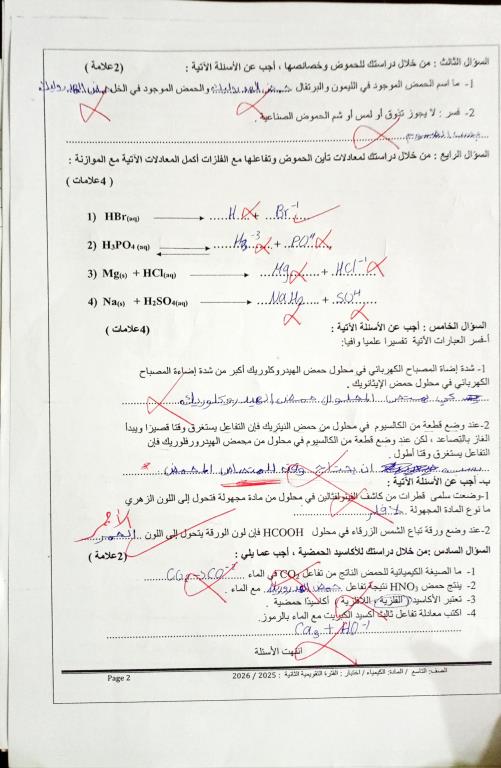 السؤال الثالث : من خلال دراستك للحموض وخصائصها ، أجب عن الأسئلة الآتية : (2علامة )
1- ما اسم الحمض الموجود في الليمون والبرتقال والحمض الموجود في الخل
2- فسر : لا يجوز تذوق أو لمس أو شم الحموض الصناعية .
السؤال الرابع : من خلال دراستك لمعادلات تأين الحموض وتفاعلها مع الفلزات أكمل المعادلات الآتية مع الموازنة :
( 4علامات )
1) HBr(aq) → H + Br-1
2) H3PO4 (aq) ⇄ H3-3 + PO4
3) Mg(s) + HCl(aq) → Mg + HCl-1
4) Na(s) + H2SO4(aq) → NaH2 + SO4
السؤال الخامس : أجب عن الأسئلة الآتية : (4علامات )
أ-فسر العبارات الآتية تفسيرا علميا وافيا:
1- شدة إضاءة المصباح الكهربائي في محلول حمض الهيدروكلوريك أكبر من شدة إضاءة المصباح
الكهربائي في محلول حمض الإيثانويك .
المحلول حمض الهيدروكلوريك
2-عند وضع قطعة من الكالسيوم في محلول من حمض النيتريك فإن التفاعل يستغرق وقتا قصيرا ويبدأ
الغاز بالتصاعد ، لكن عند وضع قطعة من الكالسيوم في محلول من محمض الهيدروفلوريك فإن
التفاعل يستغرق وقتا أطول .
ب- أجب عن الأسئلة الآتية :
1-وضعت سلمى قطرات من كاشف الفينولفثالين في محلول من مادة مجهولة فتحول إلى اللون الزهري
ما نوع المادة المجهولة
الأحمر
2-عند وضع ورقة تباع الشمس الزرقاء في محلول HCOOH فإن لون الورقة يتحول إلى اللون
السؤال السادس :من خلال دراستك للأكاسيد الحمضية ، أجب عما يلي : (2علامة )
1- ما الصيغة الكيميائية للحمض الناتج من تفاعل CO2 في الماء
2- ينتج حمض HNO3 نتيجة تفاعل مع الماء .
3- تعتبر الأكاسيد (الفلزية ، اللافلزية ) أكاسيدًا حمضية .
4- اكتب معادلة تفاعل ثالث أكسيد الكبريت مع الماء بالرموز.
Ca3 + HO-1
انتهت الأسئلة
الصف: التاسع / المادة: الكيمياء / اختبار : الفترة التقويمية الثانية : 2025 / 2026
Page 2